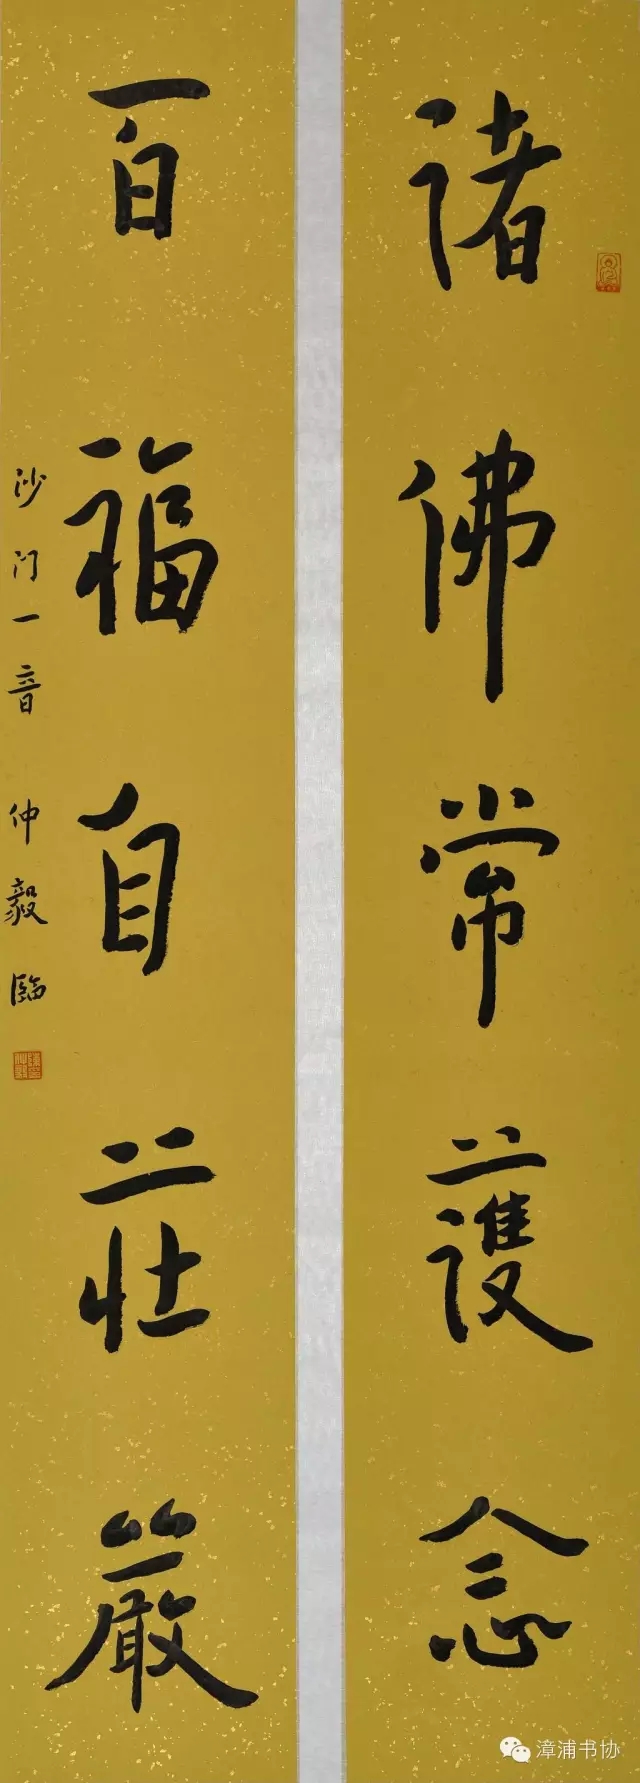 諸佛常護念
百福自莊嚴
沙门一音 仲毅臨
漳浦书协